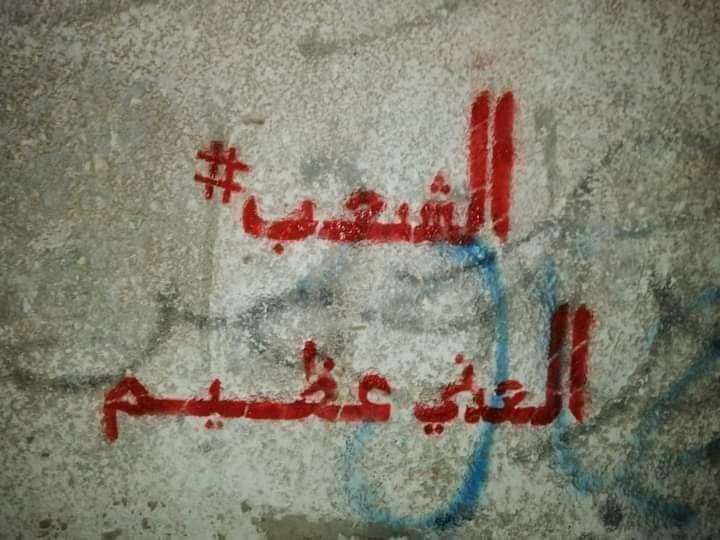 الشعب#
العدني عظيم